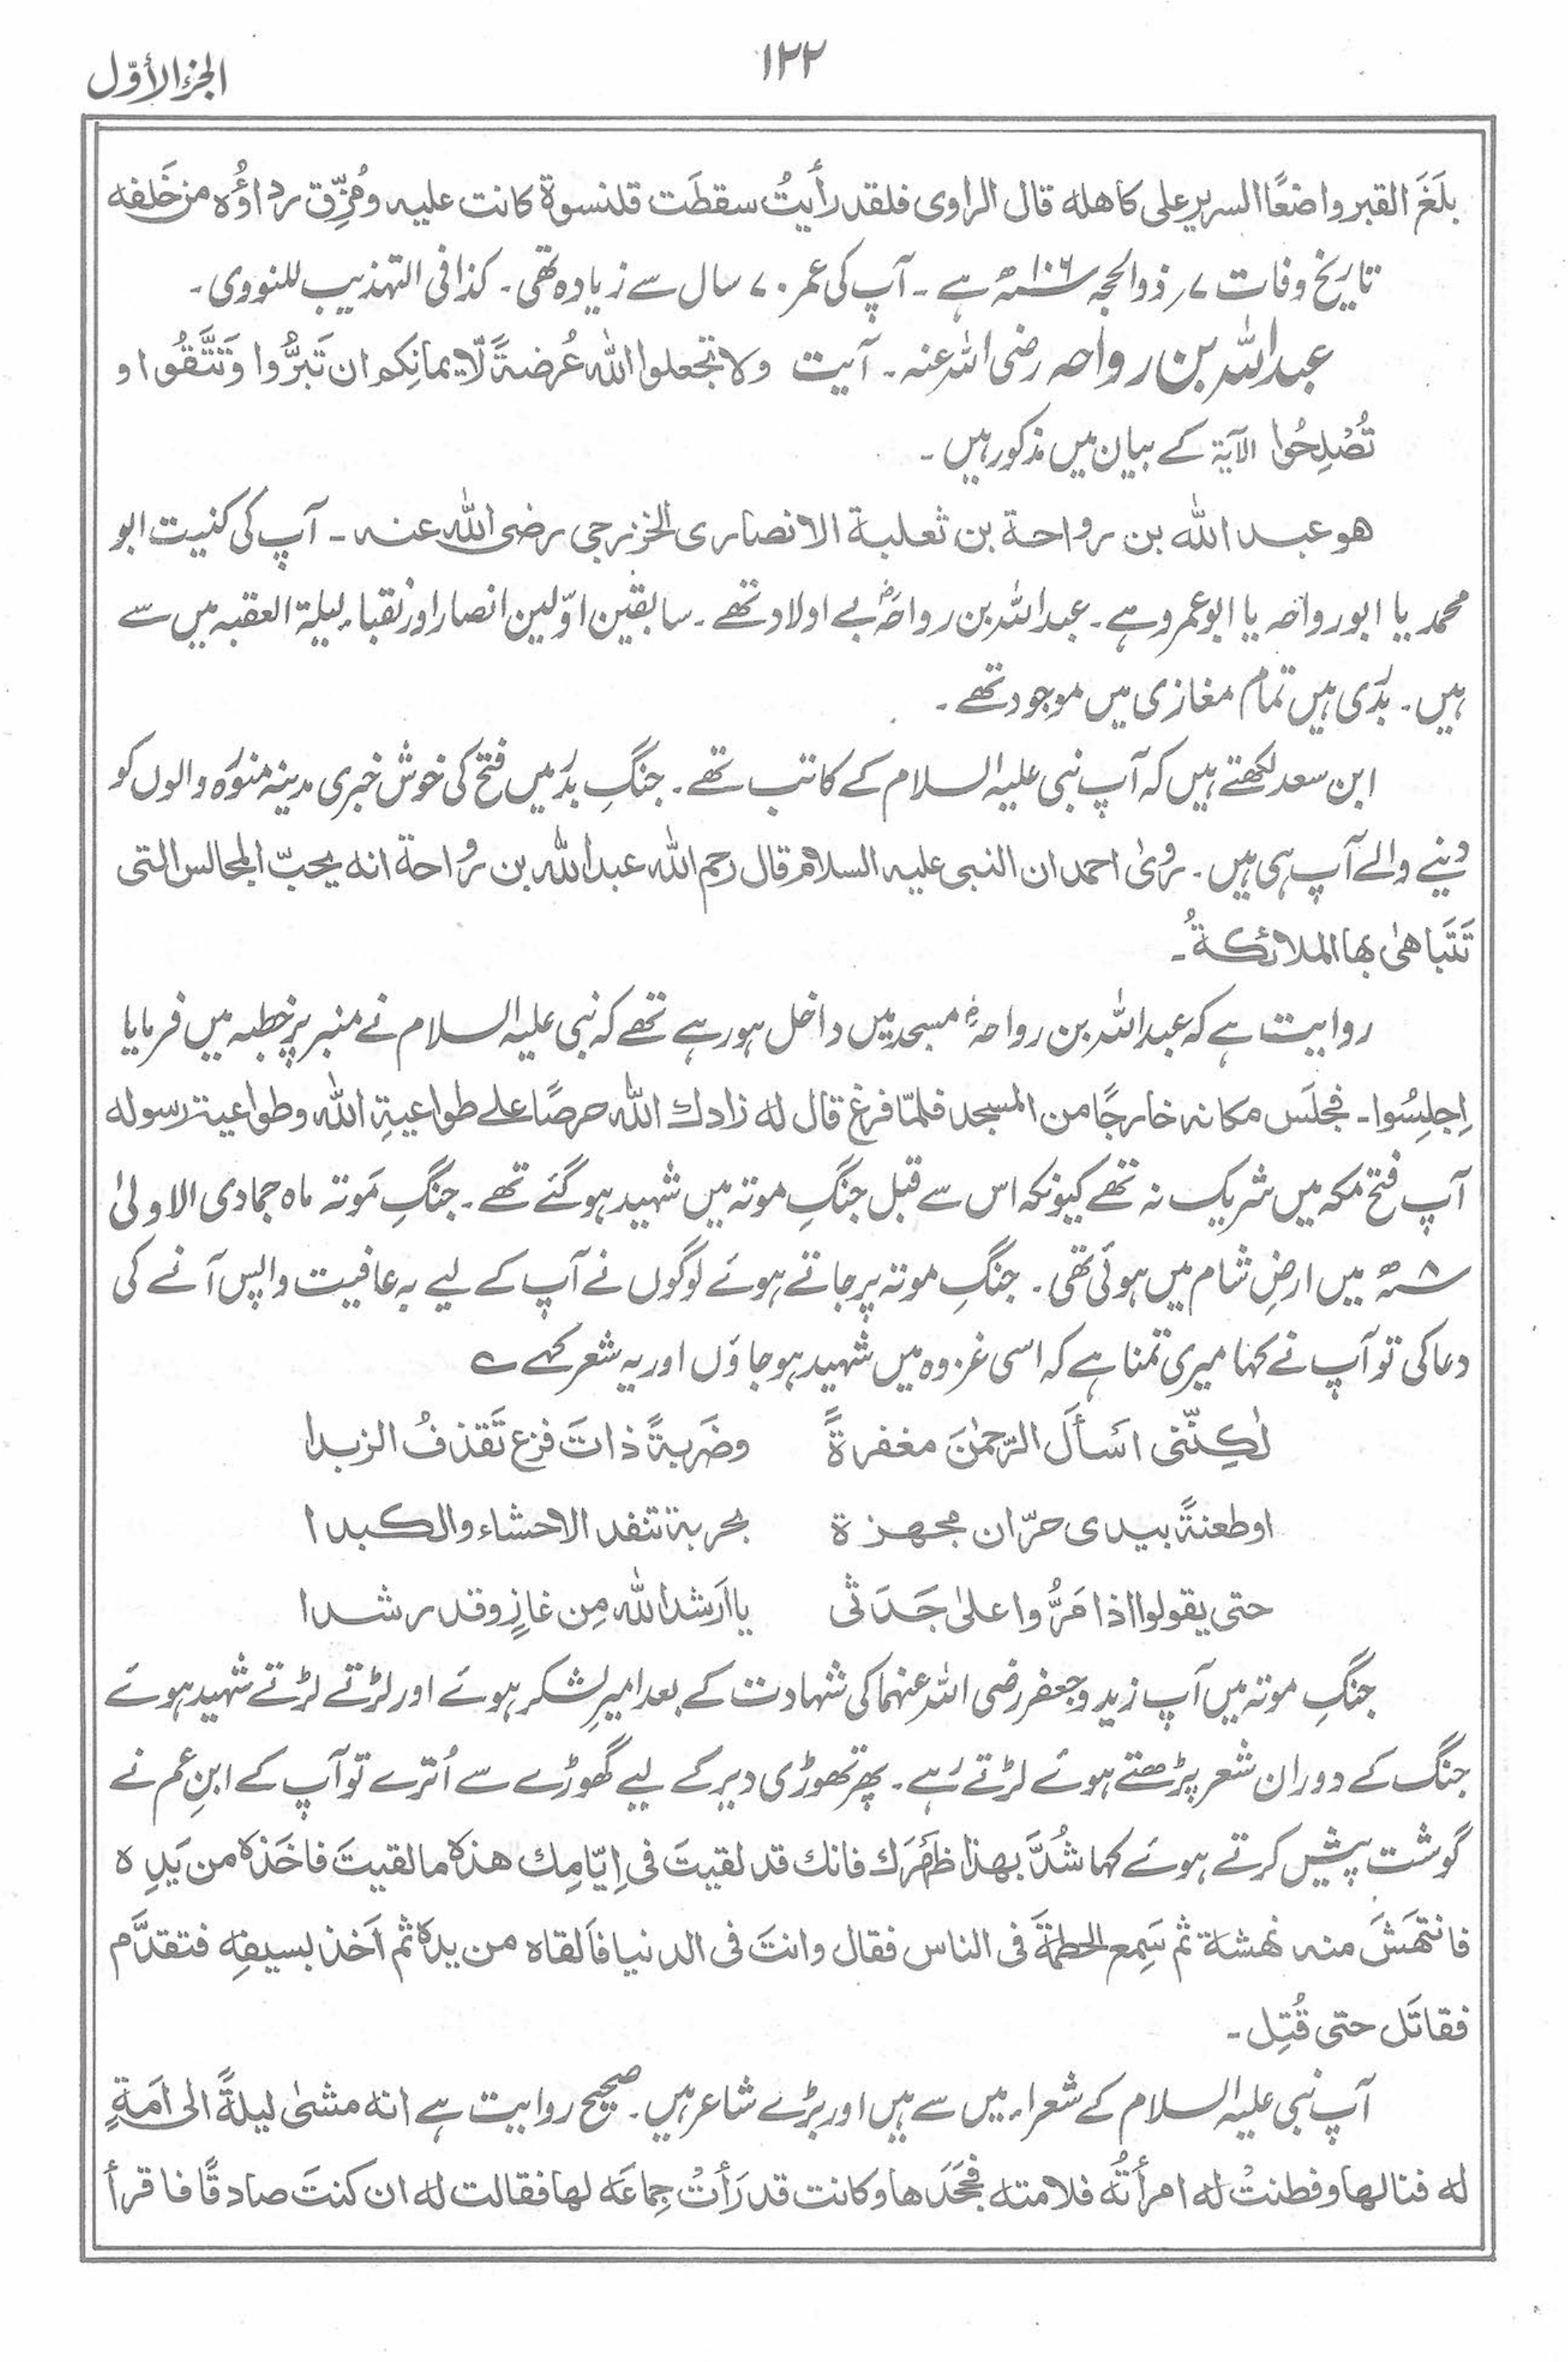 ۱۲۲
الجزء الأوّل
بلَغَ القبر واضعًا السریر علی کاهله قال الراوی فلقد رأیتُ سقطَت قلنسوة کانت علیه ومُزِّق رداؤُه من خَلفه
تاریخ وفات ۷؍ ذوالحجہ ۱۰۶ھ ہے ۔ آپ کی عمر ۷۰ سال سے زیادہ تھی ۔ کذا فی التہذیب للنووی ۔
عبداللہ بن رواحہ رضی اللہ عنہ ۔ آیت ولا تجعلوا اللہ عُرضةً لّایمانِکم ان تَبَرُّوا وَتَتَّقُوا و
تُصْلِحُوا الآیۃ کے بیان میں مذکور ہیں ۔
هو عبد الله بن رواحة بن ثعلبة الانصاری الخزرجی رضی الله عنه ۔ آپ کی کنیت ابو
محمد یا ابورواحہ یا ابوعمرو ہے ۔ عبداللہ بن رواحہؓ بے اولاد تھے ۔ سابقین اوّلین انصار اور نُقباء لیلۃ العقبہ میں سے
ہیں ۔ بدَری ہیں تمام مغازی میں موجود تھے ۔
ابن سعد لکھتے ہیں کہ آپ نبی علیہ السلام کے کاتب تھے ۔ جنگِ بدَر میں فتح کی خوش خبری مدینہ منوّرہ والوں کو
دینے والے آپ ہی ہیں ۔ رَویٰ احمد ان النبی علیه السلام قال رحم الله عبد الله بن رَواحة انه یحبّ المجالس التی
تَتَباهیٰ بها الملائکةُ ۔
روایت ہے کہ عبداللہ بن رواحہؓ مسجد میں داخل ہورہے تھے کہ نبی علیہ السلام نے منبر پر خطبہ میں فرمایا
اِجلِسُوا ۔ فجلَس مکانہ خارجًا من المسجد فلمّا فرغ قال له زادك الله حرصًا علے طواعیةِ الله وطواعیة رسوله
آپ فتح مکہ میں شریک نہ تھے کیونکہ اس سے قبل جنگِ موتہ میں شہید ہوگئے تھے ۔ جنگِ مَوتہ ماہ جمادی الاولیٰ
۸ھ میں ارضِ شام میں ہوئی تھی ۔ جنگِ موتہ پر جاتے ہوئے لوگوں نے آپ کے لیے بہ عافیت واپس آنے کی
دعا کی تو آپ نے کہا میری تمنا ہے کہ اسی غزوہ میں شہید ہوجاؤں اور یہ شعر کہے ؎
لٰکِنّنی اَسألَ الرّحمٰنَ مغفرةً وضَربةً ذاتَ فزع تَقذفُ الزبدا
اوطعنةً بیدی حرّان مجهزة بحربة تنفد الاحشاء والکبدا
حتی یقولوا اذا مَرُّوا علیٰ جَدَثی یا اَرشد الله مِن غازٍ وقد رشدا
جنگِ موتہ میں آپ زید و جعفر رضی اللہ عنہما کی شہادت کے بعد امیرِ لشکر ہوئے اور لڑتے لڑتے شہید ہوئے
جنگ کے دوران شعر پڑھتے ہوئے لڑتے رہے ۔ پھر تھوڑی دیر کے لیے گھوڑے سے اُترے تو آپ کے ابنِ عم نے
گوشت پیش کرتے ہوئے کہا شُدَّ بهذا ظَهرَك فانك قد لقیتَ فی اِیّامِك هذه ما لقیتَ فاخَذه من یَدِه
فانتهَشَ منه نهشة ثم سَمِع الحطمةَ فی الناس فقال وانتَ فی الدنیا فَالقاه من یده ثم اَخذ بسیفِه فتقدَّم
فقاتَل حتی قُتِل ۔
آپ نبی علیہ السلام کے شعراء میں سے ہیں اور بڑے شاعر ہیں ۔ صحیح روایت ہے انه مشیٰ لیلةً الی اَمَةٍ
له فنالها وفطنتْ له امرأتُه فلامته فجَحَدها وکانت قد رَأتْ جِماعَه لها فقالت له ان کنتَ صادقًا فاقرأ